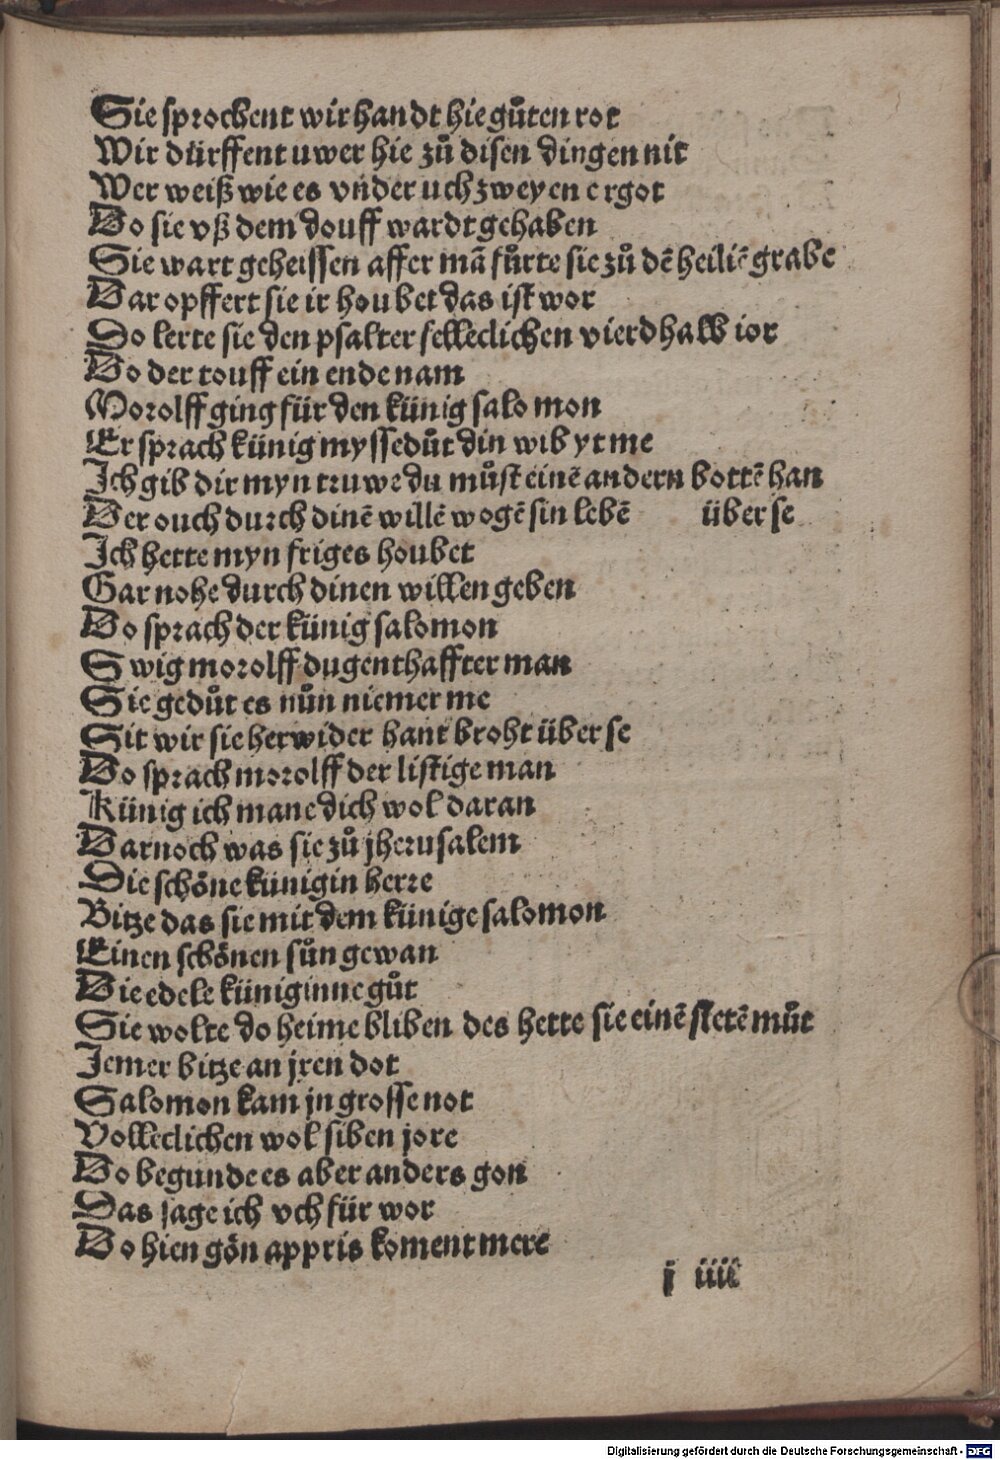 Sie sprochent wir handt hie gůten rot
Wir dürffent uwer hie zů disen dingen nit
Wer weiß wie es vnder uch zweyen ergot
Do sie vß dem douff wardt gehaben
Sie wart geheissen affer mā fůrte sie zů dē heiliē grabe
Dar opffert sie ir houbet das ist wor
Do lerte sie den psalter felleclichen vierdhalb ior
Do der touff ein ende nam
Morolff ging für den künig salomon
Er sprach künig myssedůt din wib yt me
Ich gib dir myn truwe du můst einē andern bottē han
Der ouch durch dinē willē wogē sin lebē über se
Ich hette myn friges houbet
Gar nohe durch dinen willen geben
Do sprach der künig salomon
Swig morolff dugenthaffter man
Sie gedůt es nůn niemer me
Sit wir sie herwider hant broht über se
Do sprach morolff der listige man
Künig ich mane dich wol daran
Darnoch was sie zů jherusalem
Die schöne künigin herre
Bitze das sie mit dem künige salomon
Einen schönen sůn gewan
Die edele küniginne gůt
Sie wolte do heime bliben des hette sie einē stetē můt
Jemer bitze an jren dot
Salomon kam jn grosse not
Volleclichen wol siben jore
Do begunde es aber anders gon
Das sage ich vch für wor
Do hien gön appris koment mere
j iiii
Digitalisierung gefördert durch die Deutsche Forschungsgemeinschaft - DFG